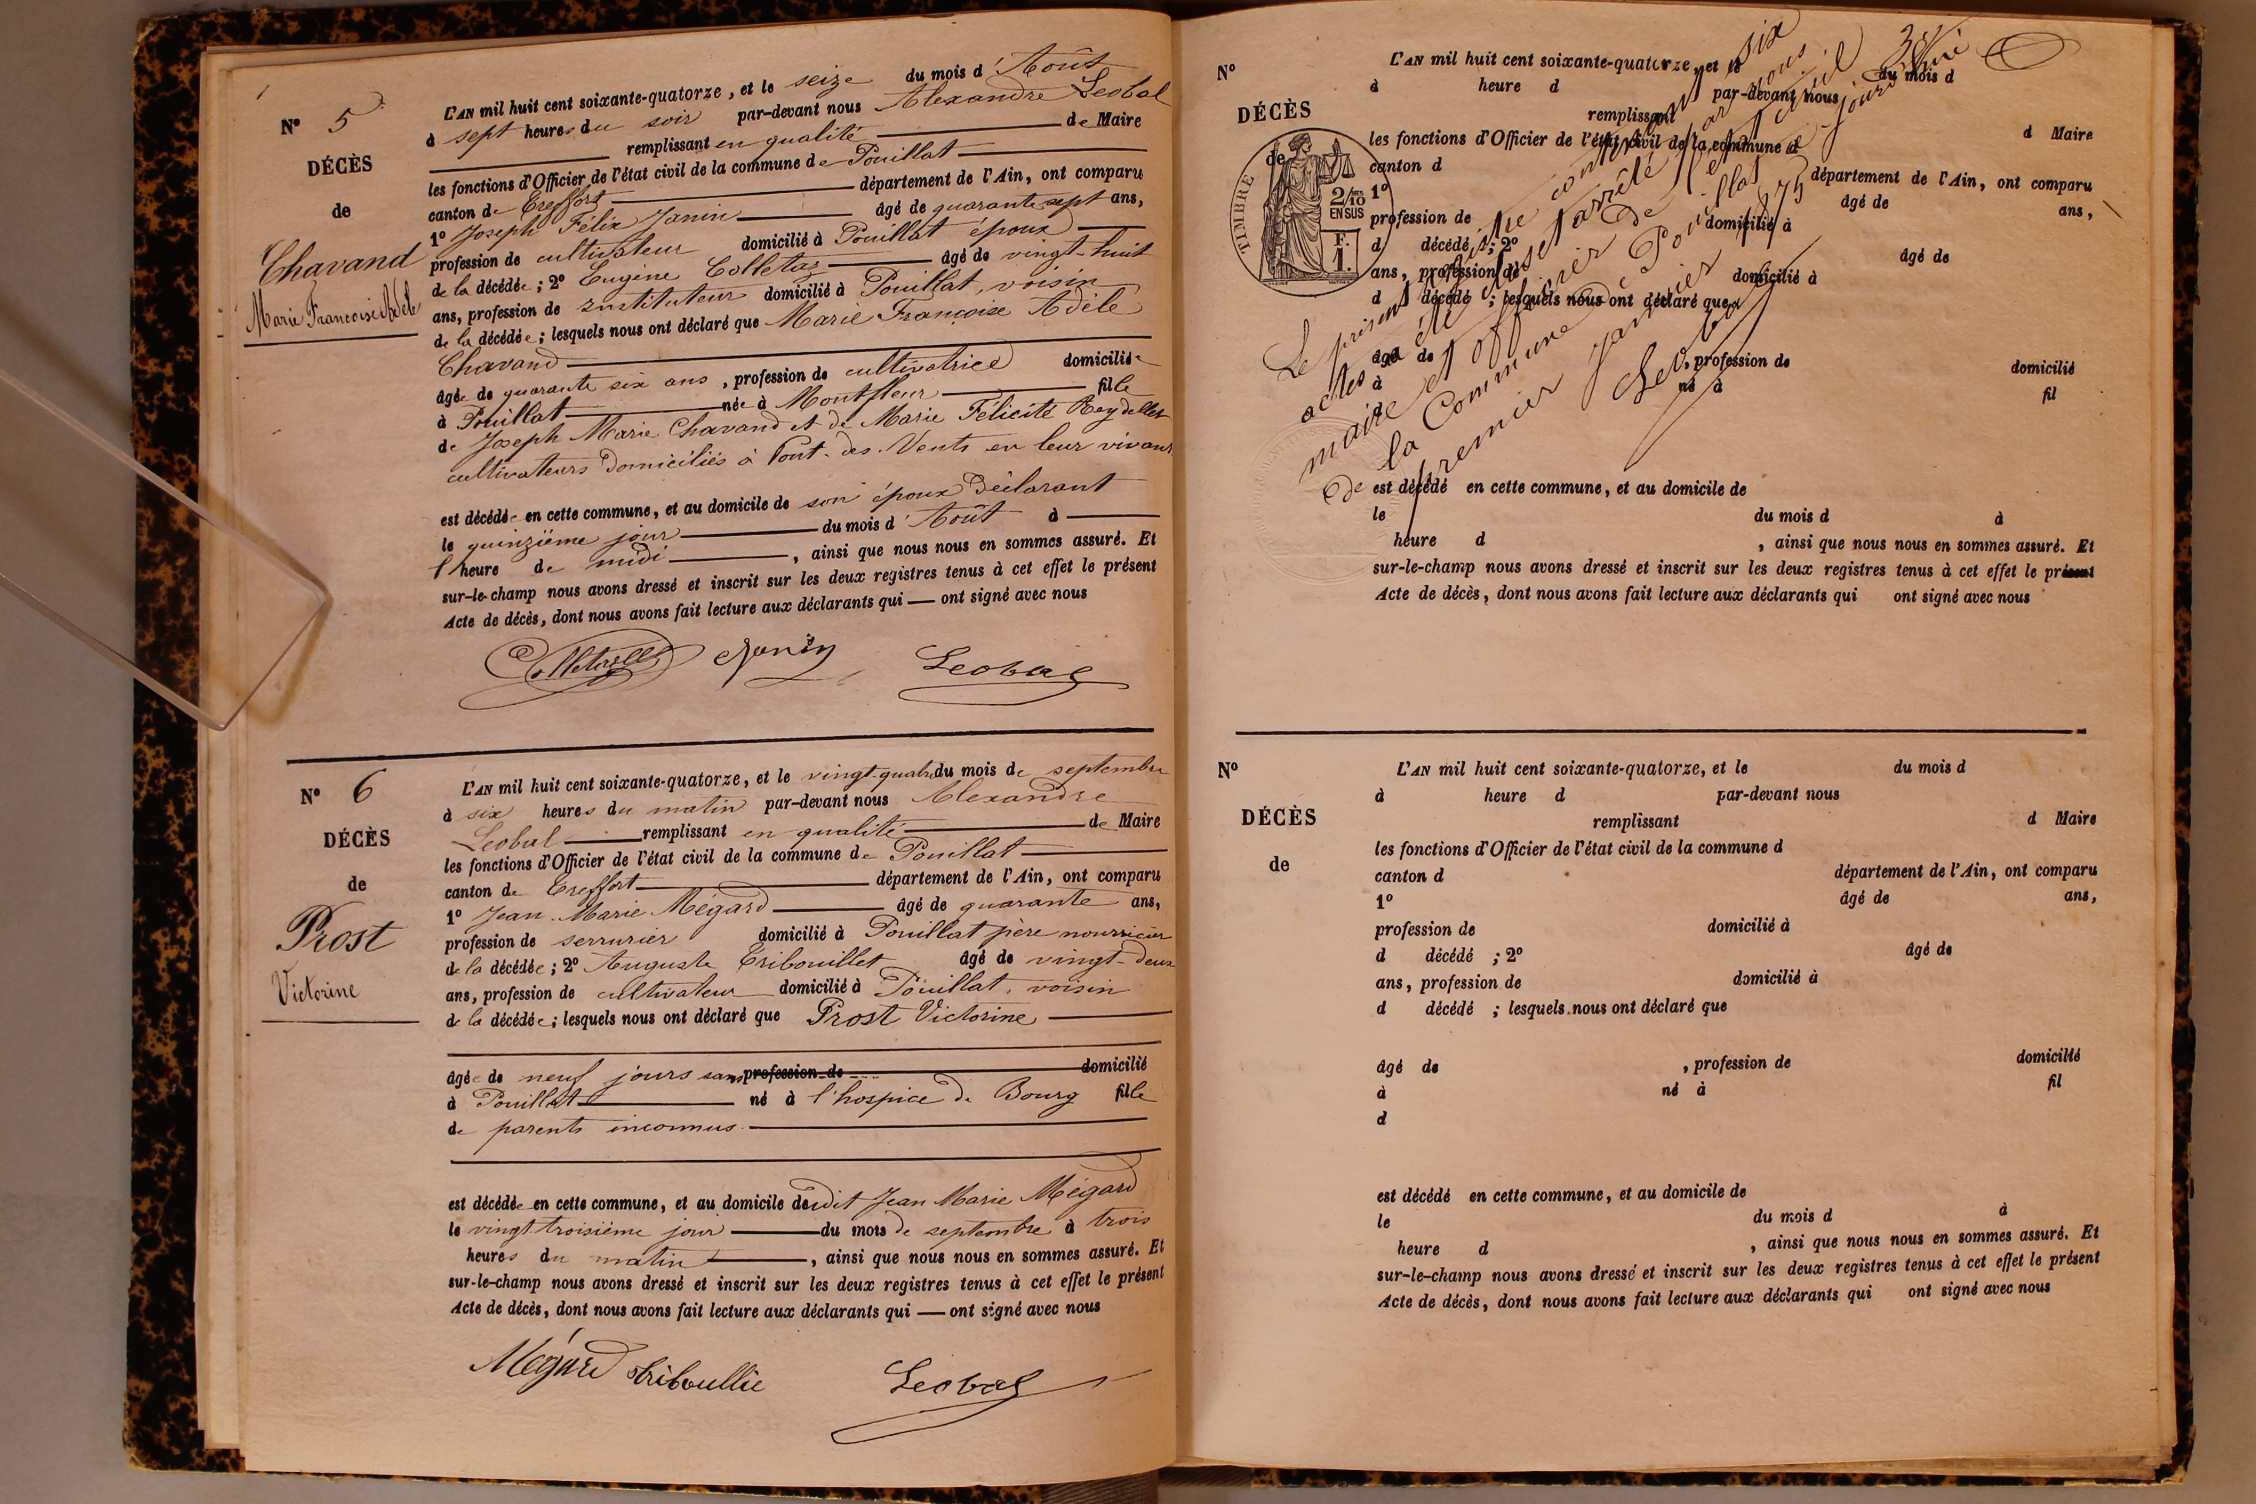 N° 5
DÉCÈS
de
Chavand
Marie Francoise Adèle
L'AN mil huit cent soixante-quatorze, et le seize du mois d'Août
à sept heures du soir par-devant nous Alexandre Leobal
remplissant en qualité de Maire
les fonctions d'Officier de l'état civil de la commune de Pouillat
canton de Treffort département de l'Ain, ont comparu
1° Joseph Félix Janin âgé de quarante sept ans,
profession de cultivateur domicilié à Pouillat époux
de la décédée; 2° Eugène Colletaz âgé de vingt-huit
ans, profession de Instituteur domicilié à Pouillat, voisin
de la décédée; lesquels nous ont déclaré que Marie Françoise Adèle
Chavand
âgée de quarante six ans, profession de cultivatrice domiciliée
à Pouillat née à Montfleur fille
de Joseph Marie Chavand et de Marie Félicité Reydellet
cultivateurs domiciliés à Pont-des-Vents en leur vivant
est décédée en cette commune, et au domicile de son époux déclarant
le quinzième jour du mois d'Août à
l'heure de midi, ainsi que nous nous en sommes assuré. Et
sur-le-champ nous avons dressé et inscrit sur les deux registres tenus à cet effet le présent
Acte de décès, dont nous avons fait lecture aux déclarants qui — ont signé avec nous
Janin Leobal
N° 6
DÉCÈS
de
Prost
Victorine
L'AN mil huit cent soixante-quatorze, et le vingt-quatre du mois de septembre
à six heures du matin par-devant nous Alexandre
Leobal remplissant en qualité de Maire
les fonctions d'Officier de l'état civil de la commune de Pouillat
canton de Treffort département de l'Ain, ont comparu
1° Jean-Marie Mégard âgé de quarante ans,
profession de serrurier domicilié à Pouillat père nourricier
de la décédée; 2° Auguste Tribouillet âgé de vingt-deux
ans, profession de cultivateur domicilié à Pouillat, voisin
de la décédée; lesquels nous ont déclaré que Prost Victorine
âgée de neuf jours sans profession de domicilié
à Pouillat né à l'hospice de Bourg fille
de parents inconnus
est décédée en cette commune, et au domicile dudit Jean Marie Mégard
le vingt troisième jour du mois de septembre à trois
heures du matin, ainsi que nous nous en sommes assuré. Et
sur-le-champ nous avons dressé et inscrit sur les deux registres tenus à cet effet le présent
Acte de décès, dont nous avons fait lecture aux déclarants qui — ont signé avec nous
Mégard Leobal
N°
DÉCÈS
de
TIMBRE
2/10
EN SUS
F.
1.
L'AN mil huit cent soixante-quatorze, et le du mois d
à heure d par-devant nous
remplissant d Maire
les fonctions d'Officier de l'état civil de la commune d
canton d département de l'Ain, ont comparu
1° âgé de ans,
profession de domicilié à
d décédé ; 2° âgé de
ans, profession de domicilié à
d décédé ; lesquels nous ont déclaré que
âgé de , profession de domicilié
à né à fil
est décédé en cette commune, et au domicile de
le du mois d à
heure d , ainsi que nous nous en sommes assuré. Et
sur-le-champ nous avons dressé et inscrit sur les deux registres tenus à cet effet le présent
Acte de décès, dont nous avons fait lecture aux déclarants qui ont signé avec nous
Le présent registre contenant six
actes a été clos et arrêté par nous
maire et officier de l'état civil
de la Commune de Pouillat ce jourd'hui
premier Janvier 1875
Leobal
N°
DÉCÈS
de
L'AN mil huit cent soixante-quatorze, et le du mois d
à heure d par-devant nous
remplissant d Maire
les fonctions d'Officier de l'état civil de la commune d
canton d département de l'Ain, ont comparu
1° âgé de ans,
profession de domicilié à
d décédé ; 2° âgé de
ans, profession de domicilié à
d décédé ; lesquels nous ont déclaré que
âgé de , profession de domicilié
à né à fil
d
est décédé en cette commune, et au domicile de
le du mois d à
heure d , ainsi que nous nous en sommes assuré. Et
sur-le-champ nous avons dressé et inscrit sur les deux registres tenus à cet effet le présent
Acte de décès, dont nous avons fait lecture aux déclarants qui ont signé avec nous